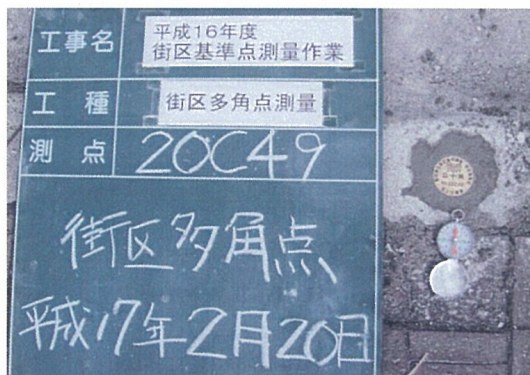 工事名
平成16年度
街区基準点測量作業
工種
街区多角点測量
測点
20C49
街区多角点
平成17年2月20日